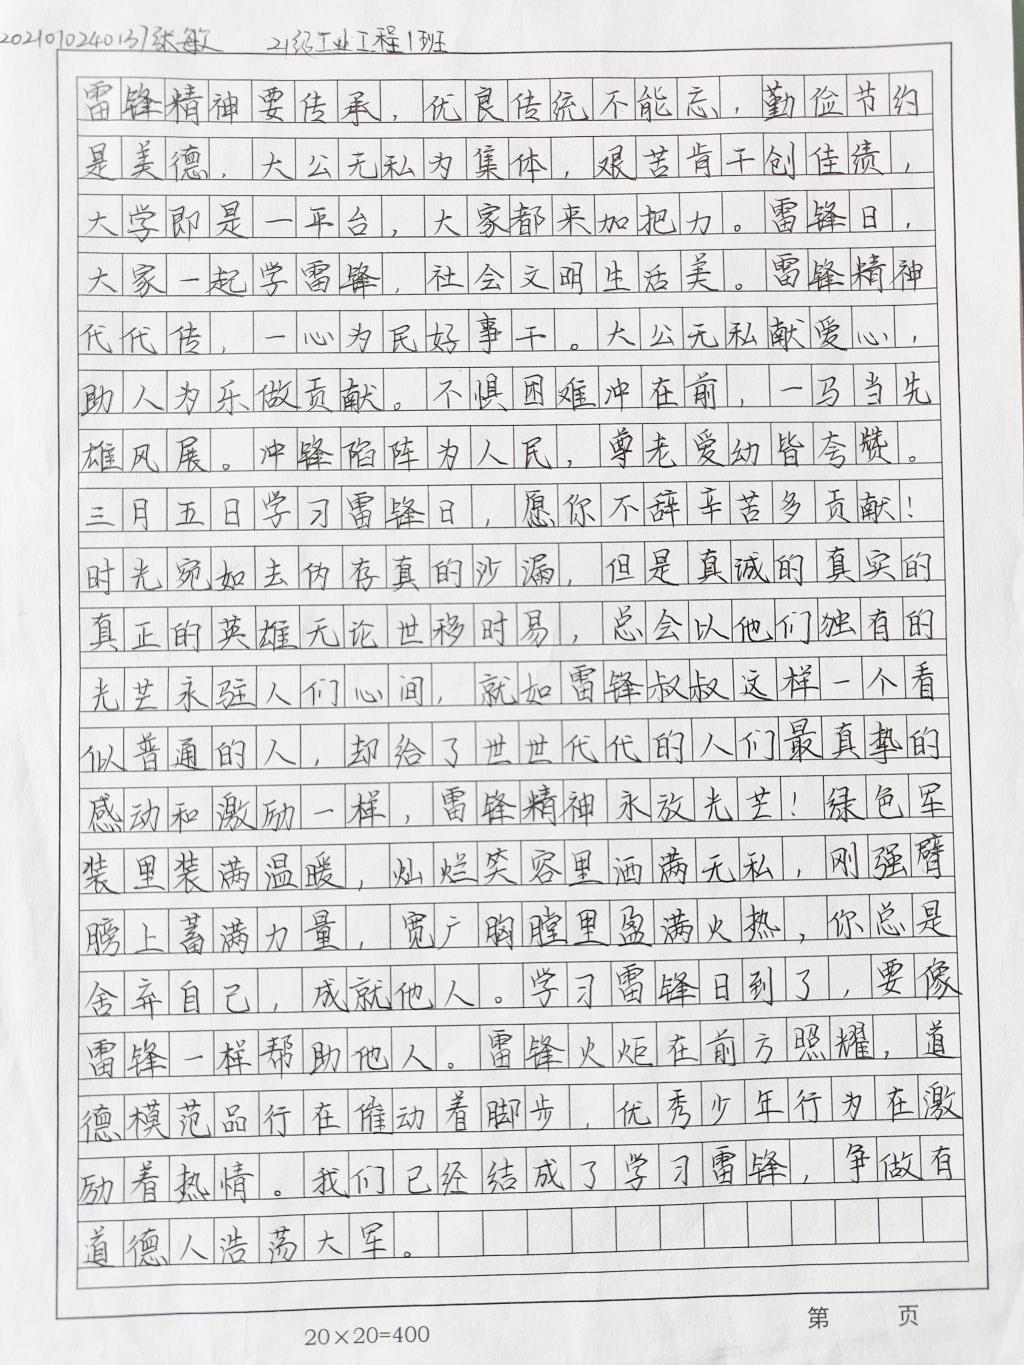 202101024013张敏 21级工业工程1班
雷锋精神要传承，优良传统不能忘，勤俭节约
是美德，大公无私为集体，艰苦肯干创佳绩，
大学即是一平台，大家都来加把力。雷锋日，
大家一起学雷锋，社会文明生活美。雷锋精神
代代传，一心为民好事干。大公无私献爱心，
助人为乐做贡献。不惧困难冲在前，一马当先
雄风展。冲锋陷阵为人民，尊老爱幼皆夸赞。
三月五日学习雷锋日，愿你不辞辛苦多贡献！
时光宛如去伪存真的沙漏，但是真诚的真实的
真正的英雄无论世移时易，总会以他们独有的
光芒永驻人们心间，就如雷锋叔叔这样一个看
似普通的人，却给了世世代代的人们最真挚的
感动和激励一样，雷锋精神永放光芒！绿色军
装里装满温暖，灿烂笑容里洒满无私，刚强臂
膀上蓄满力量，宽广胸膛里盈满火热，你总是
舍弃自己，成就他人。学习雷锋日到了，要像
雷锋一样帮助他人。雷锋火炬在前方照耀，道
德模范品行在催动着脚步，优秀少年行为在激
励着热情。我们已经结成了学习雷锋，争做有
道德人浩荡大军。
20×20=400
第 页